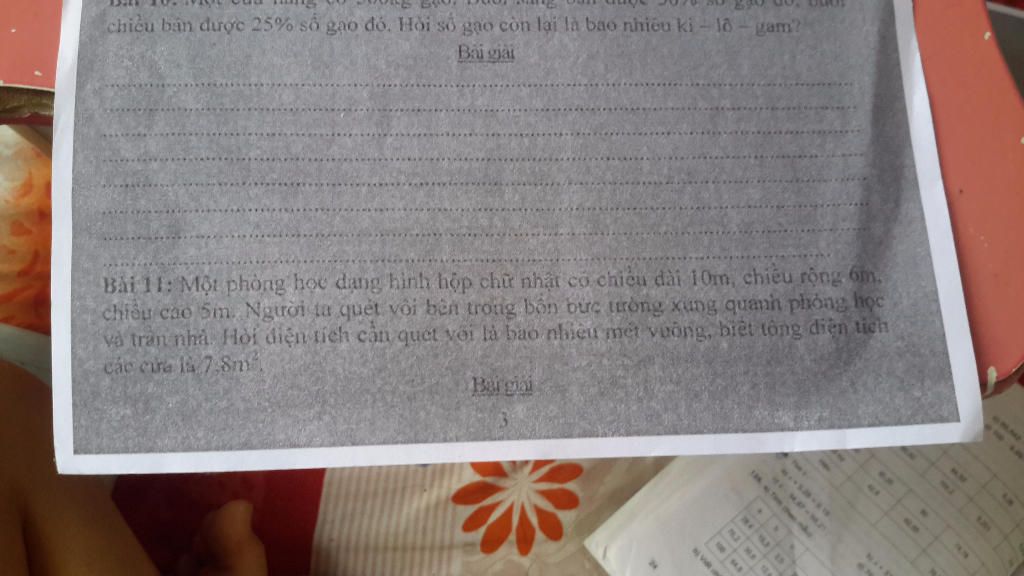 Bài 10: Một cửa hàng có 500kg gạo. Buổi sáng bán được 50% số gạo đó, buổi
chiều bán được 25% số gạo đó. Hỏi số gạo còn lại là bao nhiêu ki – lô – gam?
Bài giải
Bài 11: Một phòng học dạng hình hộp chữ nhật có chiều dài 10m, chiều rộng 6m,
chiều cao 5m. Người ta quét vôi bên trong bốn bức tường xung quanh phòng học
và trần nhà. Hỏi diện tích cần quét vôi là bao nhiêu mét vuông, biết tổng diện tích
các cửa là 7,8m².
Bài giải
3
24